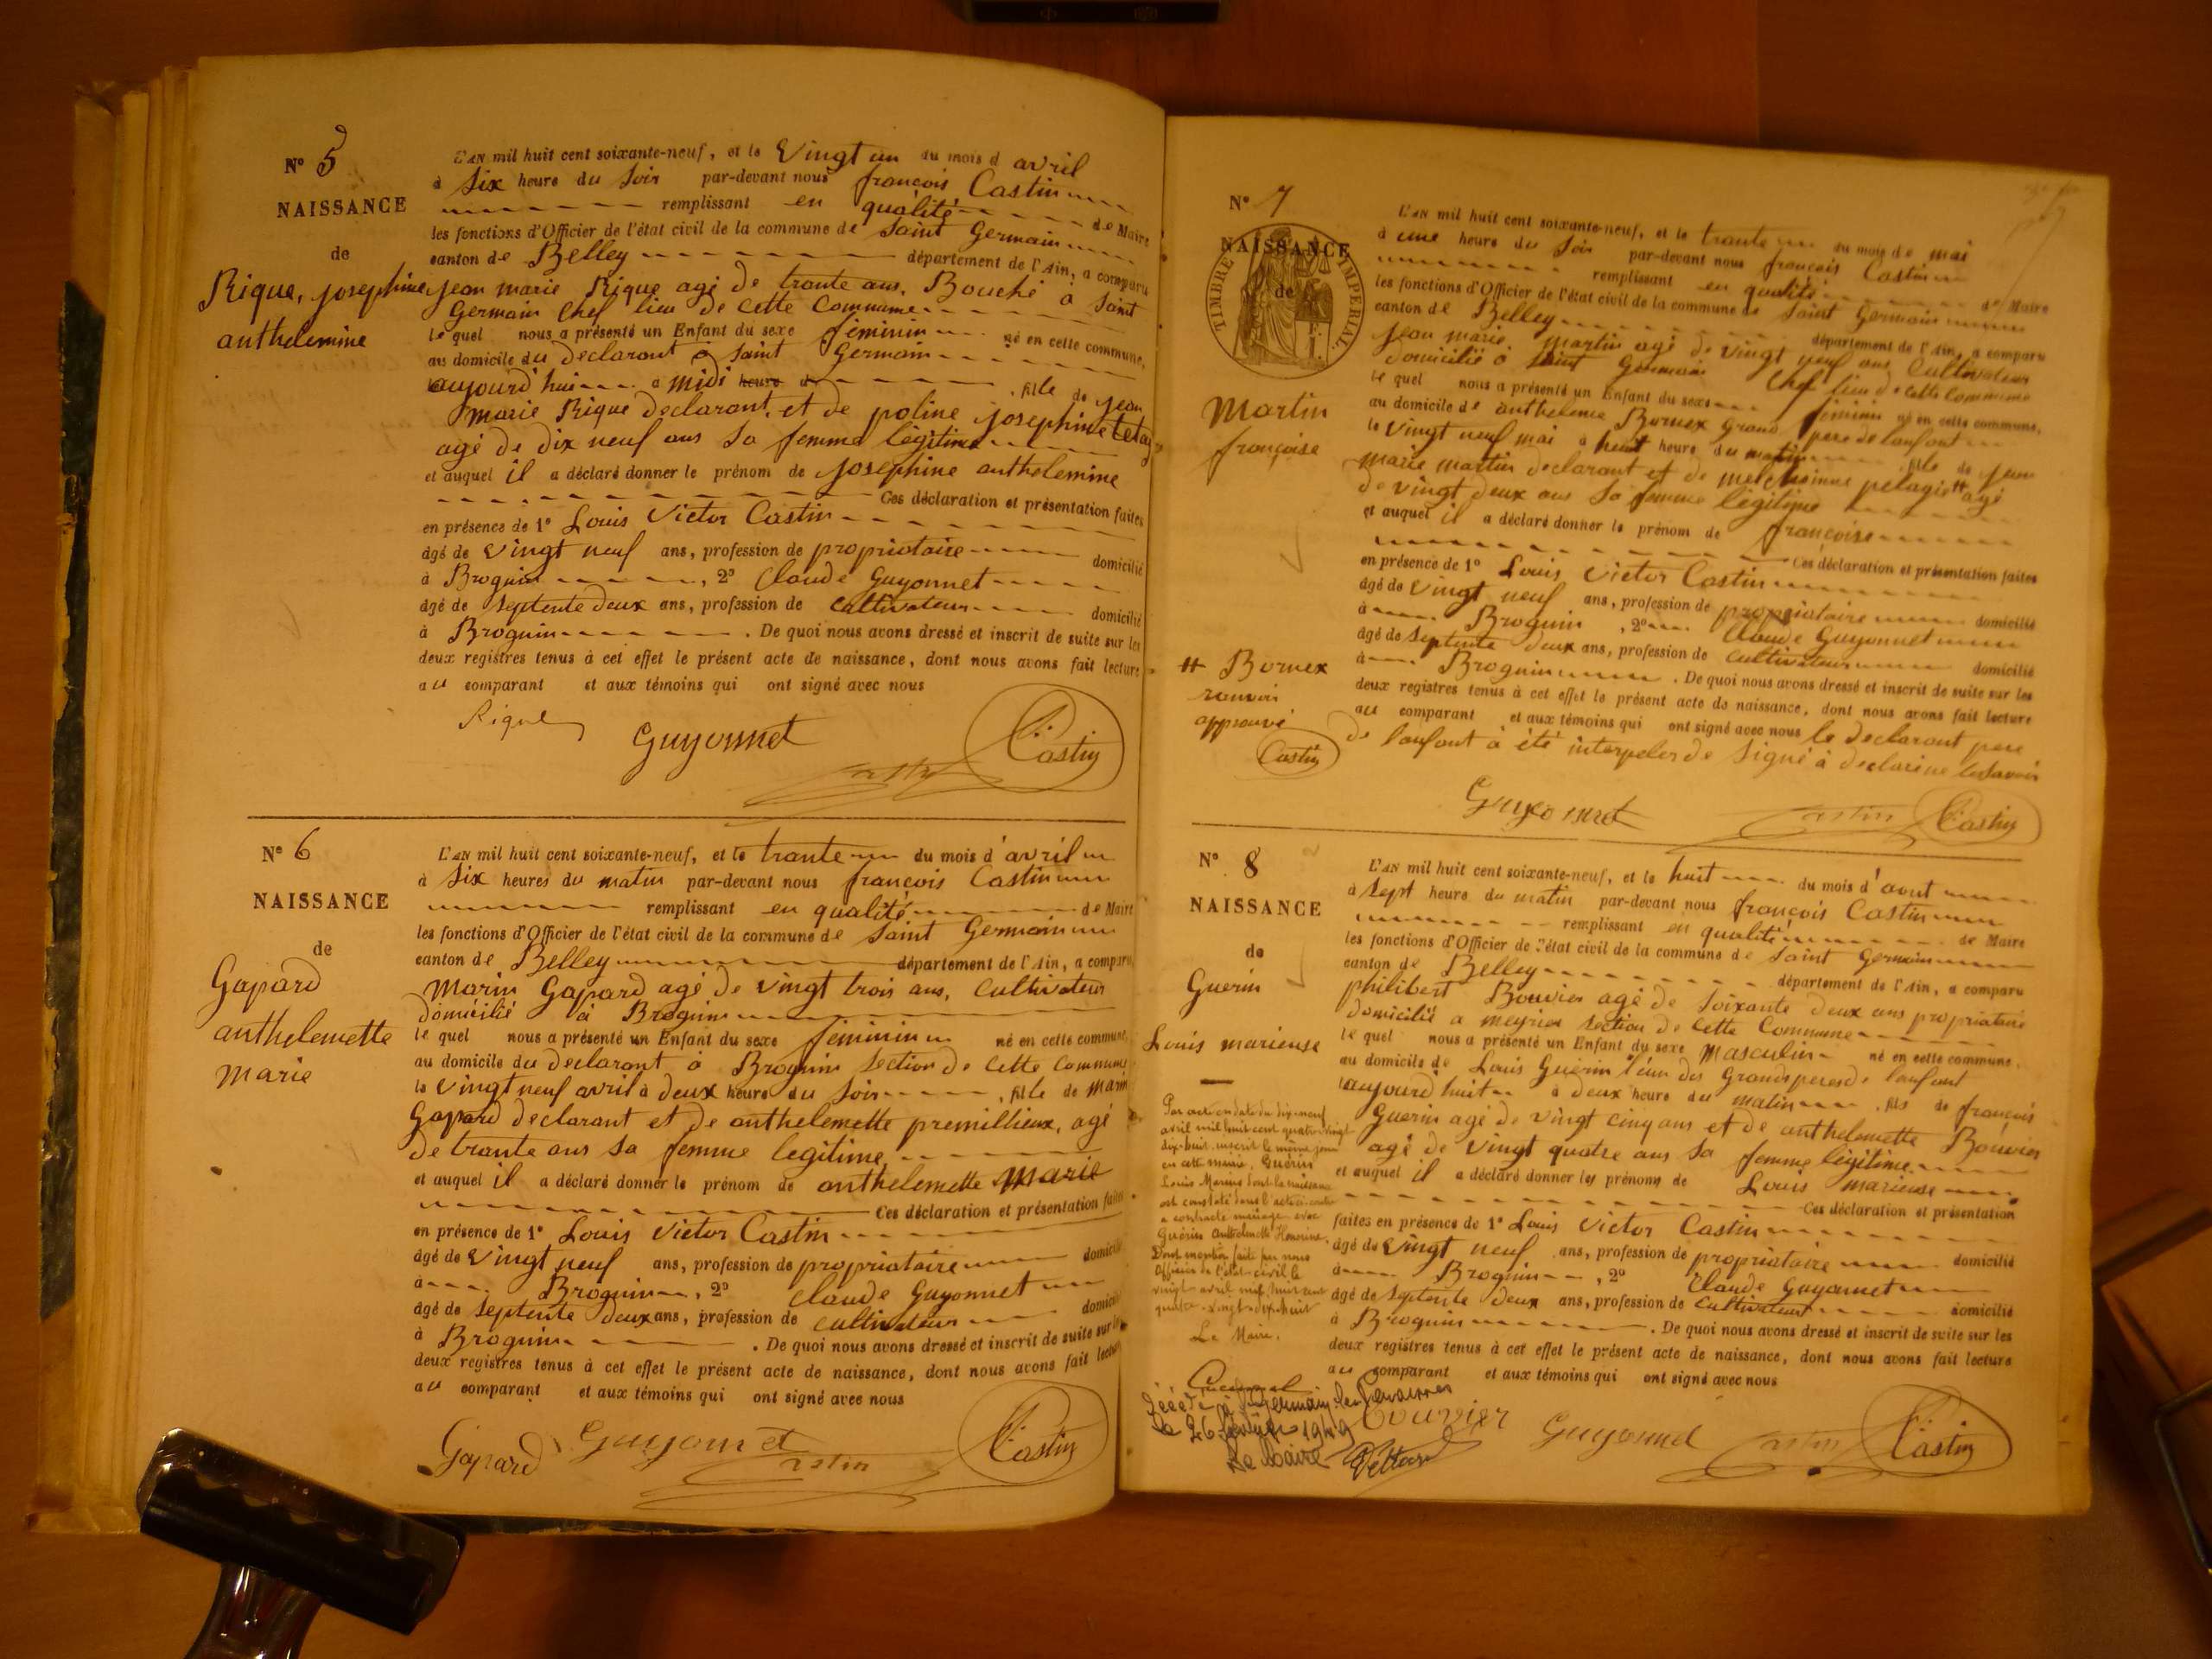 Nº 5
NAISSANCE
de
Rique, josephine
anthelmine
L'AN mil huit cent soixante-neuf, et le Vingt un du mois d avril
à Six heure du Soir par-devant nous françois Castin
remplissant en qualité de Maire
les fonctions d'Officier de l'état civil de la commune de Saint Germain
canton de Belley département de l'Ain, a comparu
jean marie Rique agé de trante ans, Bouché à Saint
Germain Chef lieu de cette Commune
le quel nous a présenté un Enfant du sexe féminin né en cette commune,
au domicile du declarant à Saint Germain
aujourd'hui à midi heure d , fille de jean
marie Rique declarant, et de poline josephine
agé de dix neuf ans Sa femme légitime
et auquel il a déclaré donner le prénom de josephine anthelemine
Ces déclaration et présentation faites
en présence de 1º Louis Victor Castin
âgé de Vingt neuf ans, profession de propriataire domicilié
à Brognin , 2º Claude Guyonnet
âgé de Septente deux ans, profession de Cultivateur domicilié
à Brognin . De quoi nous avons dressé et inscrit de suite sur les
deux registres tenus à cet effet le présent acte de naissance, dont nous avons fait lecture
au comparant et aux témoins qui ont signé avec nous
Rique
Guyonnet
Castin
Castin
Nº 6
NAISSANCE
de
Gapard
anthelemette
Marie
L'AN mil huit cent soixante-neuf, et le trante du mois d'avril
à Six heures du matin par-devant nous françois Castin
remplissant en qualité de Maire
les fonctions d'Officier de l'état civil de la commune de Saint Germain
canton de Belley département de l'Ain, a comparu
Marin Gapard agé de Vingt trois ans, Cultivateur
domicilié à Brognin
le quel nous a présenté un Enfant du sexe féminin né en cette commune,
au domicile du declarant à Brognin Section de Cette Commune
le Vingt neuf avril à deux heure du Soir , fille de Marin
Gapard declarant et de anthelemette premillieux, agé
de trante ans Sa femme legitime
et auquel il a déclaré donner le prénom de anthelemette Marie
Ces déclaration et présentation faites
en présence de 1º Louis Victor Castin
âgé de Vingt neuf ans, profession de propriataire domicilié
à Brognin , 2º Claude Guyonnet
âgé de Septente deux ans, profession de Cultivateur domicilié
à Brognin . De quoi nous avons dressé et inscrit de suite sur les
deux registres tenus à cet effet le présent acte de naissance, dont nous avons fait lecture
au comparant et aux témoins qui ont signé avec nous
Gapard
Guyonnet
Castin
Castin
Nº 7
NAISSANCE
de
TIMBRE IMPERIAL
Martin
françoise
L'AN mil huit cent soixante-neuf, et le trante du mois de mai
à une heure du Soir par-devant nous françois Castin
remplissant en qualité de Maire
les fonctions d'Officier de l'état civil de la commune de Saint Germain
canton de Belley département de l'Ain, a comparu
jean marie martin agé de Vingt neuf ans Cultivateur
domicilié à Saint Germain Chef lieu de cette Commune
le quel nous a présenté un Enfant du sexe féminin né en cette commune,
au domicile de anthelme Bornex grand pere de l'anfant
le Vingt neuf mai à huit heure du matin , fille de jean
marie martin declarant et de pelagie # agé
de vingt deux ans Sa femme légitime
et auquel il a déclaré donner le prénom de françoise
Ces déclaration et présentation faites
en présence de 1º Louis Victor Castin
âgé de Vingt neuf ans, profession de propriataire domicilié
à Brognin , 2º Claude Guyonnet
âgé de Septente deux ans, profession de Cultivateur domicilié
à Brognin . De quoi nous avons dressé et inscrit de suite sur les
deux registres tenus à cet effet le présent acte de naissance, dont nous avons fait lecture
au comparant et aux témoins qui ont signé avec nous le declarant pere
de lanfant à été interpeler de Signé à declarine
# Bornex
ranvoi
approuvé
Castin
Guyonnet
Castin
Castin
Nº 8
NAISSANCE
de
Guerin
Louis marieuse
L'AN mil huit cent soixante-neuf, et le huit du mois d'aout
à Sept heure du matin par-devant nous françois Castin
remplissant en qualité de Maire
les fonctions d'Officier de l'état civil de la commune de Saint Germain
canton de Belley département de l'Ain, a comparu
philibert Bouvier agé de Soixante deux ans propriataire
domicilié a meyrieu Section de cette Commune
le quel nous a présenté un Enfant du sexe Masculin né en cette commune,
au domicile de Louis Guerin l'eun des Grands peres de lanfant
aujourd huit à deux heure du matin , fils de françois
Guerin agé de Vingt cinq ans et de anthelemette Bouvier
agé de Vingt quatre ans Sa femme légitime
et auquel il a déclaré donner les prénoms de Louis marieuse
Ces déclaration et présentation
faites en présence de 1º Louis Victor Castin
âgé de Vingt neuf ans, profession de propriataire domicilié
à Brognin , 2º Claude Guyonnet
âgé de Septente deux ans, profession de Cultivateur domicilié
à Brognin . De quoi nous avons dressé et inscrit de suite sur les
deux registres tenus à cet effet le présent acte de naissance, dont nous avons fait lecture
au comparant et aux témoins qui ont signé avec nous
Par acte en date du dix-neuf
avril mil huit cent quatre vingt
dix-huit, inscrit le même jour
en cette mairie, Guérin
Louis Marius dont la naissance
est constatée dans l'acte ci-contre
a contracté mariage avec
Guérin Anthelmette Honorine.
Dont mention faite par nous
Officier de l'état-civil le
vingt avril mil huit cent
quatre-vingt-dix-huit
Le Maire,
Décédé à St Germain-les-Paroisses
le 26 1949
Le Maire
Bouvier
Guyonnet
Castin
Castin